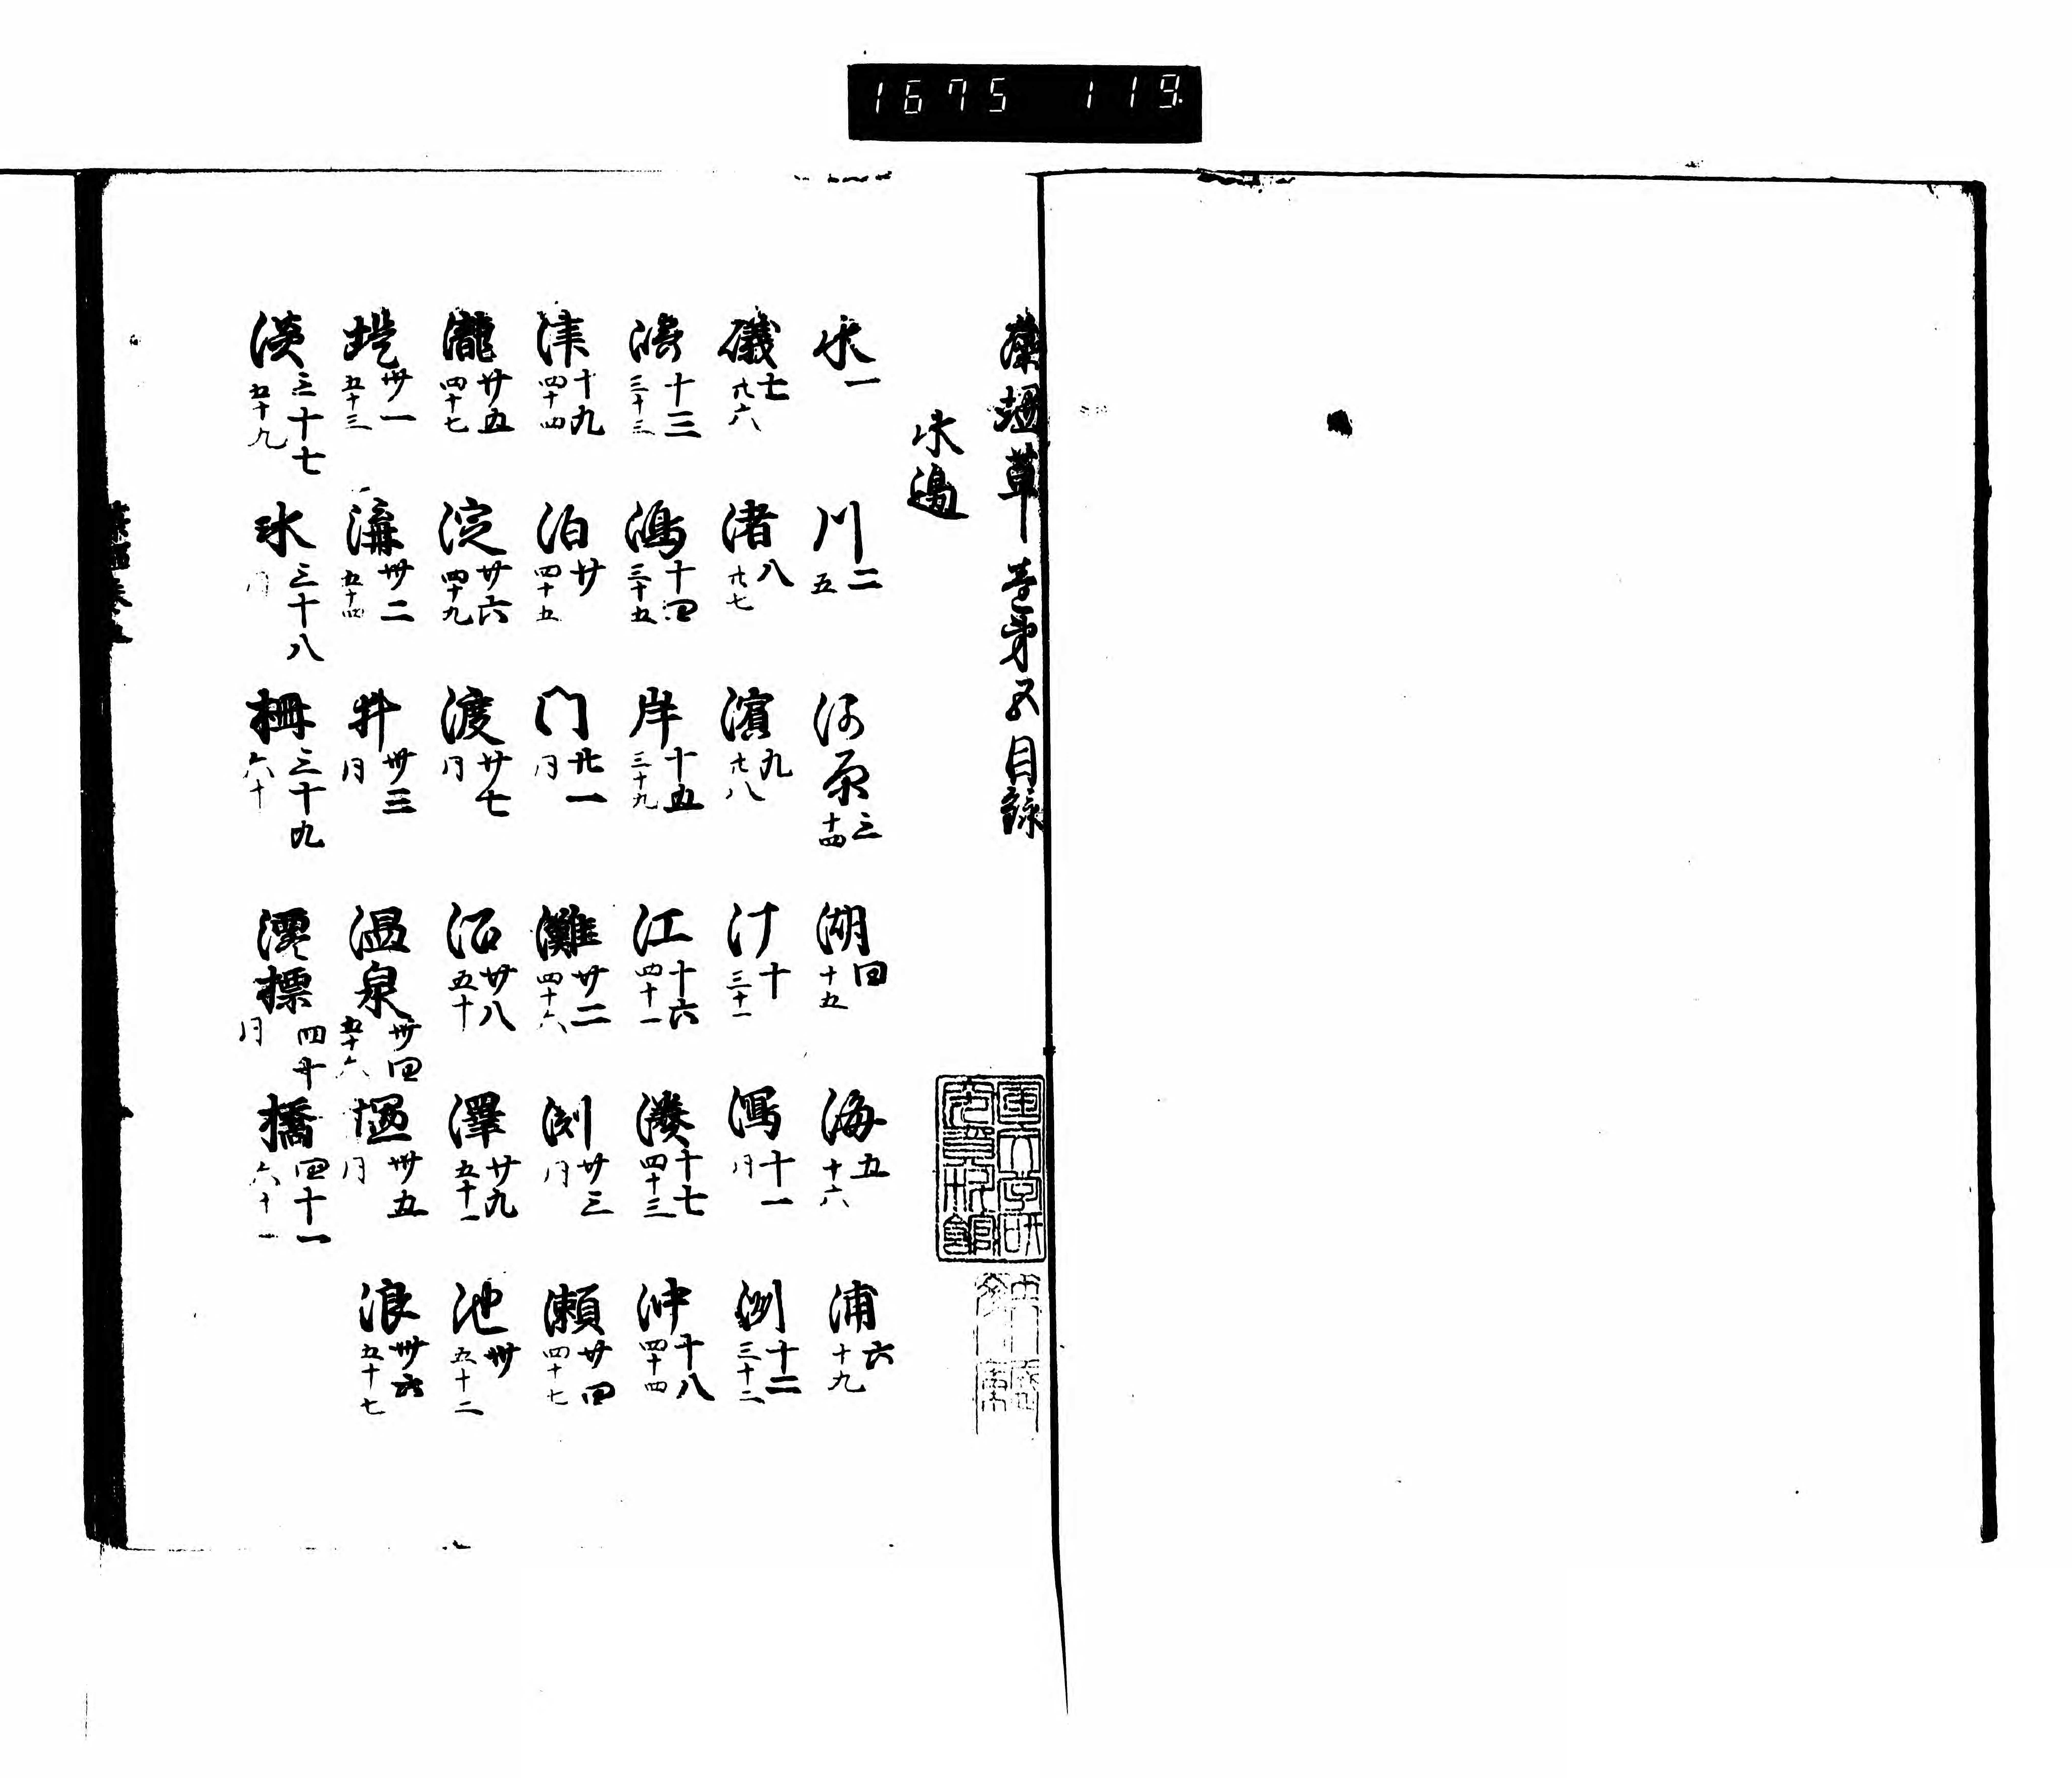 1675 119
藻塩草巻第五目録
水邊
水 一 川 二 五 河原 三 十四 湖 四 十五 海 五 十六 浦 六 十九
礒 七 廿六 渚 八 廿七 濱 九 廿八 汀 十 三十一 潟 十一 同 洲 十二 三十二
濤 十三 三十三 嶋 十四 三十五 岸 十五 三十九 江 十六 四十一 湊 十七 四十三 沖 十八 四十四
津 十九 四十四 泊 廿 四十五 门 廿一 同 灘 廿二 四十六 渕 廿三 同 瀬 廿四 四十七
瀧 廿五 四十七 淀 廿六 四十九 渡 廿七 同 沼 廿八 五十 澤 廿九 五十一 池 卅 五十二
堤 卅一 五十三 溝 卅二 五十四 井 卅三 同 温泉 卅四 五十六 塩 卅五 同 浪 卅六 五十七
淡 三十七 五十九 氷 三十八 同 柵 三十九 六十 澪標 四十 同 橋 四十一 六十一